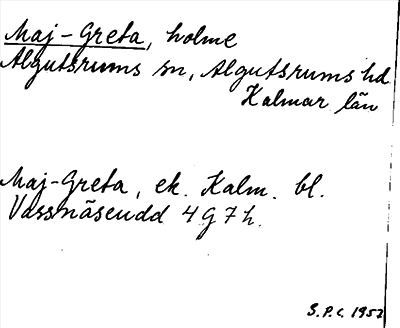 Maj-Greta, holme
Algutsrums sn, Algutsrums hd
Kalmar län
Maj-Greta, ek. Kalm. bl.
Vassnäsudd 4G7h.
S.P.C. 1952